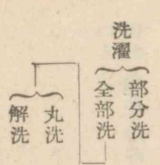 洗濯
部分洗
全部洗
丸洗
解洗